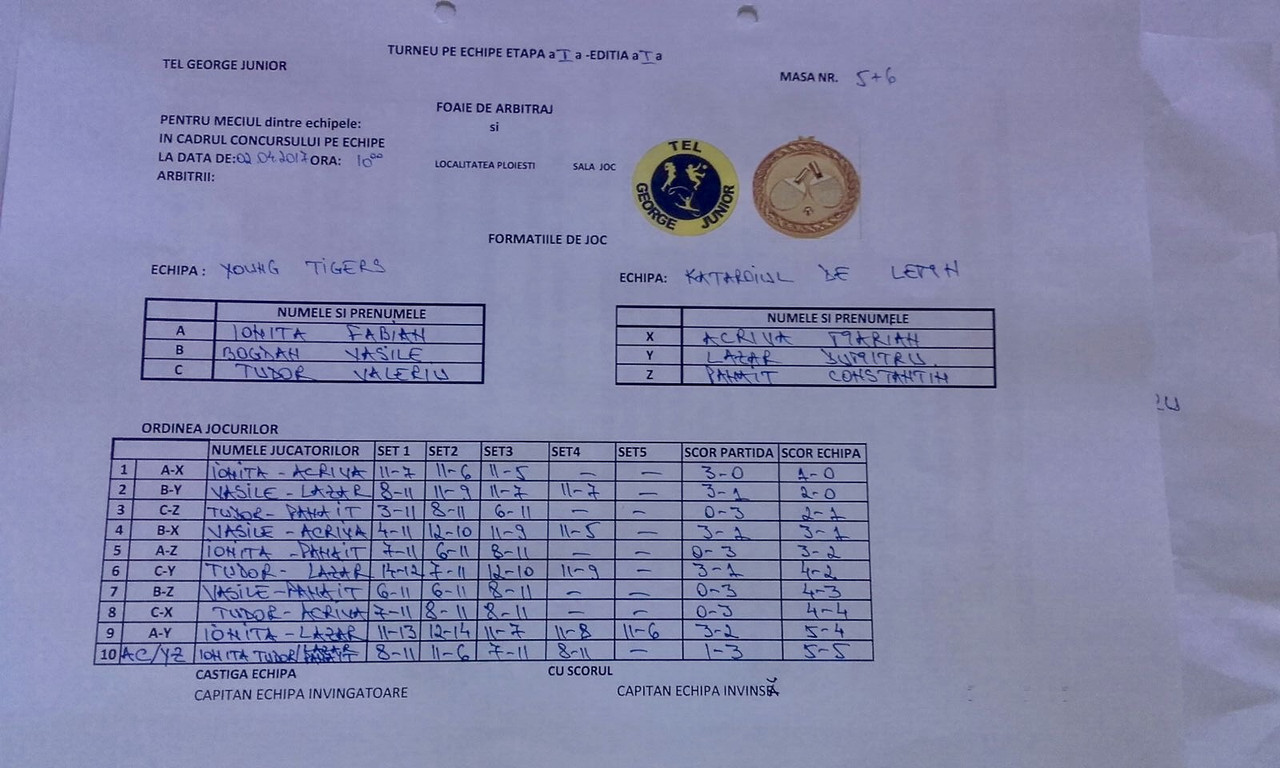 TURNEU PE ECHIPE ETAPA a I a -EDITIA a I a
TEL GEORGE JUNIOR
MASA NR. 5+6
FOAIE DE ARBITRAJ
si
PENTRU MECIUL dintre echipele:
IN CADRUL CONCURSULUI PE ECHIPE
LA DATA DE: 02.04.2017 ORA: 10⁰⁰
LOCALITATEA PLOIESTI SALA JOC
ARBITRII:
TEL
GEORGE JUNIOR
FORMATIILE DE JOC
ECHIPA : YOUNG TIGERS
ECHIPA: KATARDIUL DE LEMN
NUMELE SI PRENUMELE
A IONITA FABIAN
B BOGDAN VASILE
C TUDOR VALERIU
NUMELE SI PRENUMELE
X ACRIVA MARIAN
Y LAZAR DUMITRU
Z PANAIT CONSTANTIN
ORDINEA JOCURILOR
NUMELE JUCATORILOR SET 1 SET2 SET3 SET4 SET5 SCOR PARTIDA SCOR ECHIPA
1 A-X IONITA - ACRIVA 11-7 11-6 11-5 — — 3-0 1-0
2 B-Y VASILE - LAZAR 8-11 11-9 11-7 11-7 — 3-1 2-0
3 C-Z TUDOR - PANAIT 3-11 8-11 6-11 — — 0-3 2-1
4 B-X VASILE - ACRIVA 4-11 12-10 11-9 11-5 — 3-1 3-1
5 A-Z IONITA - PANAIT 7-11 6-11 8-11 — — 0-3 3-2
6 C-Y TUDOR - LAZAR 14-12 7-11 12-10 11-9 — 3-1 4-2
7 B-Z VASILE - PANAIT 6-11 6-11 8-11 — — 0-3 4-3
8 C-X TUDOR - ACRIVA 7-11 8-11 8-11 — — 0-3 4-4
9 A-Y IONITA - LAZAR 11-13 12-14 11-7 11-8 11-6 3-2 5-4
10 AC/YZ IONITA TUDOR/LAZAR 8-11 11-6 7-11 8-11 — 1-3 5-5
CASTIGA ECHIPA CU SCORUL
CAPITAN ECHIPA INVINGATOARE CAPITAN ECHIPA INVINSĂ